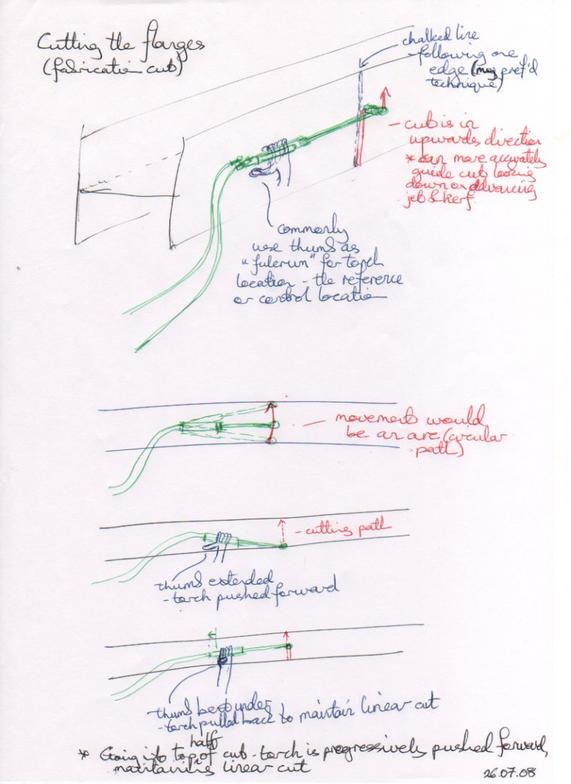 Cutting the flanges
(fabrication cut)
chalked line
- following one
edge (my pref'd
technique)
- cut is in
upwards direction
* can more accurately
guide cut looking
down on advancing
jet & kerf
commonly
use thumb as
"fulcrum" for torch
location - the reference
or control location
- movement would
be an arc (circular
path)
- cutting path
thumb extended
- torch pushed forward
thumb bent under
- torch pulled back to maintain linear cut
half
* Going into top of cut - torch is progressively pushed forward,
maintaining linear cut
26.07.08